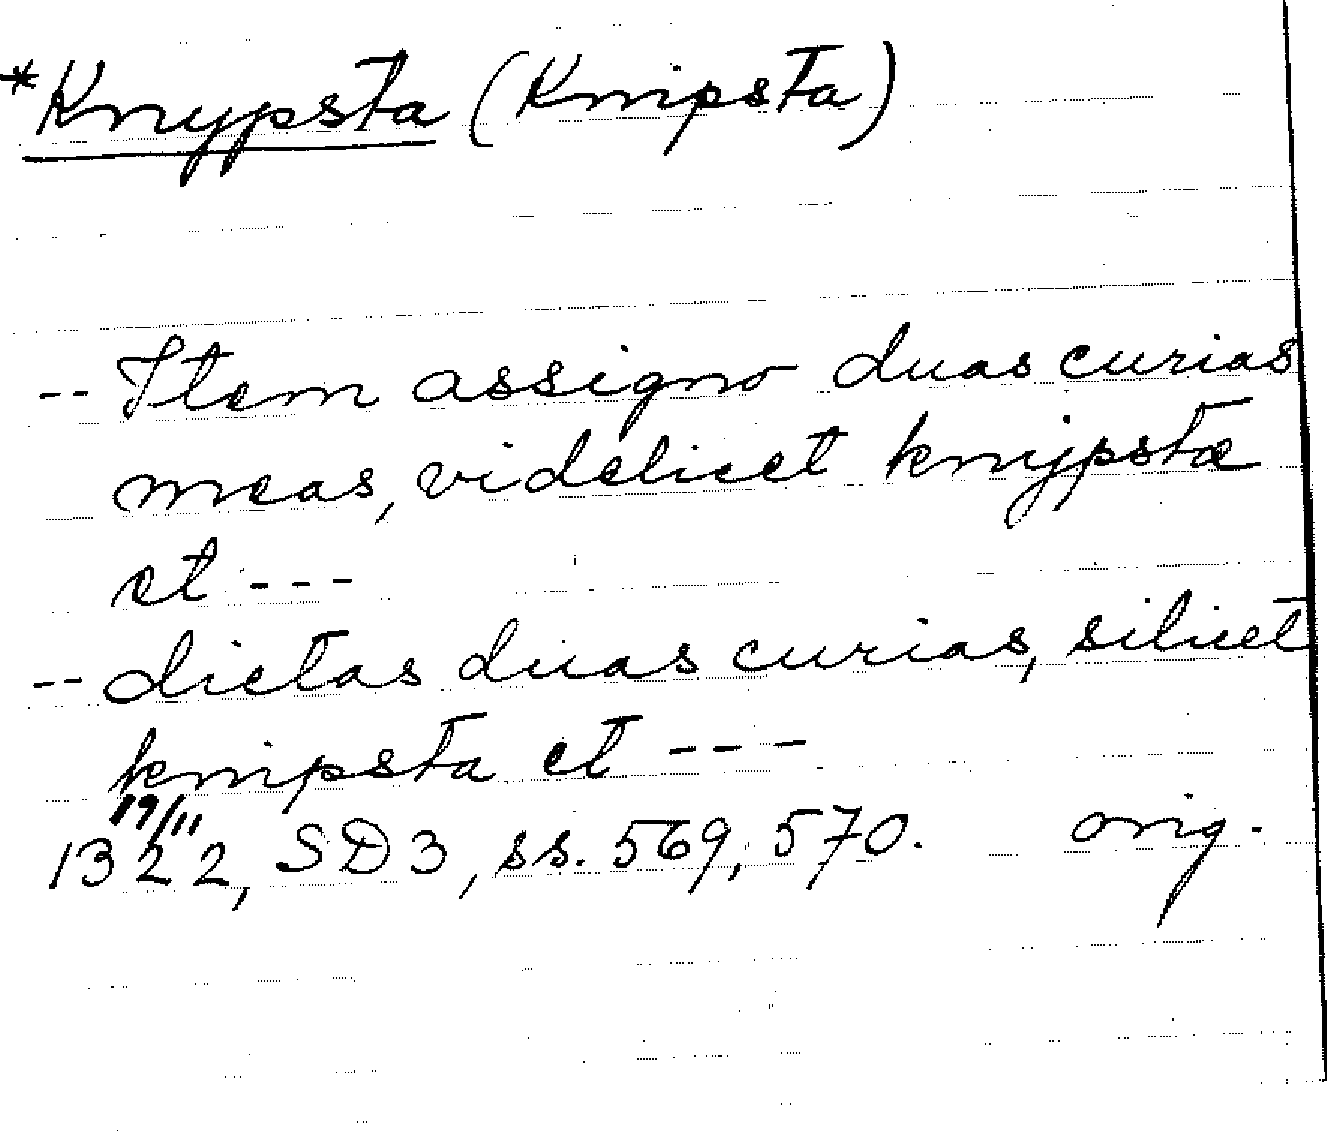 *Knypsta (Knipsta)
-- Item assigno duas curias
meas, videlicet knijpstæ
et ---
-- dictas duas curias, silicet
knipsta et ---
19/11
1322, SD3, ss. 569, 570. orig.